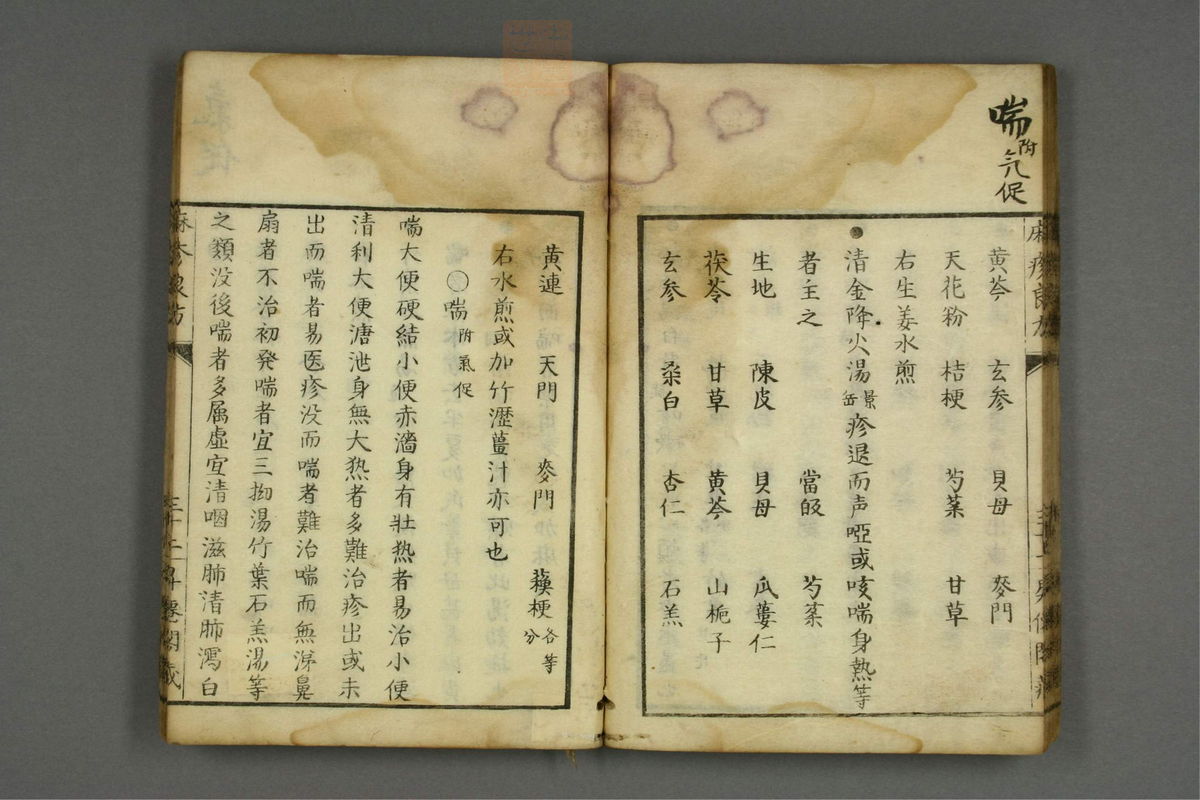 喘附气促
黄芩 玄参 貝母 麥門
天花粉 桔梗 芍薬 甘草
右生姜水煎
清金降火湯景岳疹退而声啞或咳喘身熱等
者主之 當皈 芍薬
生地 陳皮 貝母 瓜蔞仁
茯苓 甘草 黄芩 山栀子
玄参 桒白 杏仁 石羔
黄連 天門 麥門 蘓梗各等分
右水煎或加竹瀝薑汁亦可也
〇喘附氣促
喘大便硬結小便赤濇身有壮热者易治小便
清利大便溏泄身無大热者多難治疹出或未
出而喘者易医疹没而喘者難治喘而無涕鼻
扇者不治初発喘者宜三拗湯竹葉石羔湯等
之類没後喘者多属虚宜清咽滋肺清肺瀉白